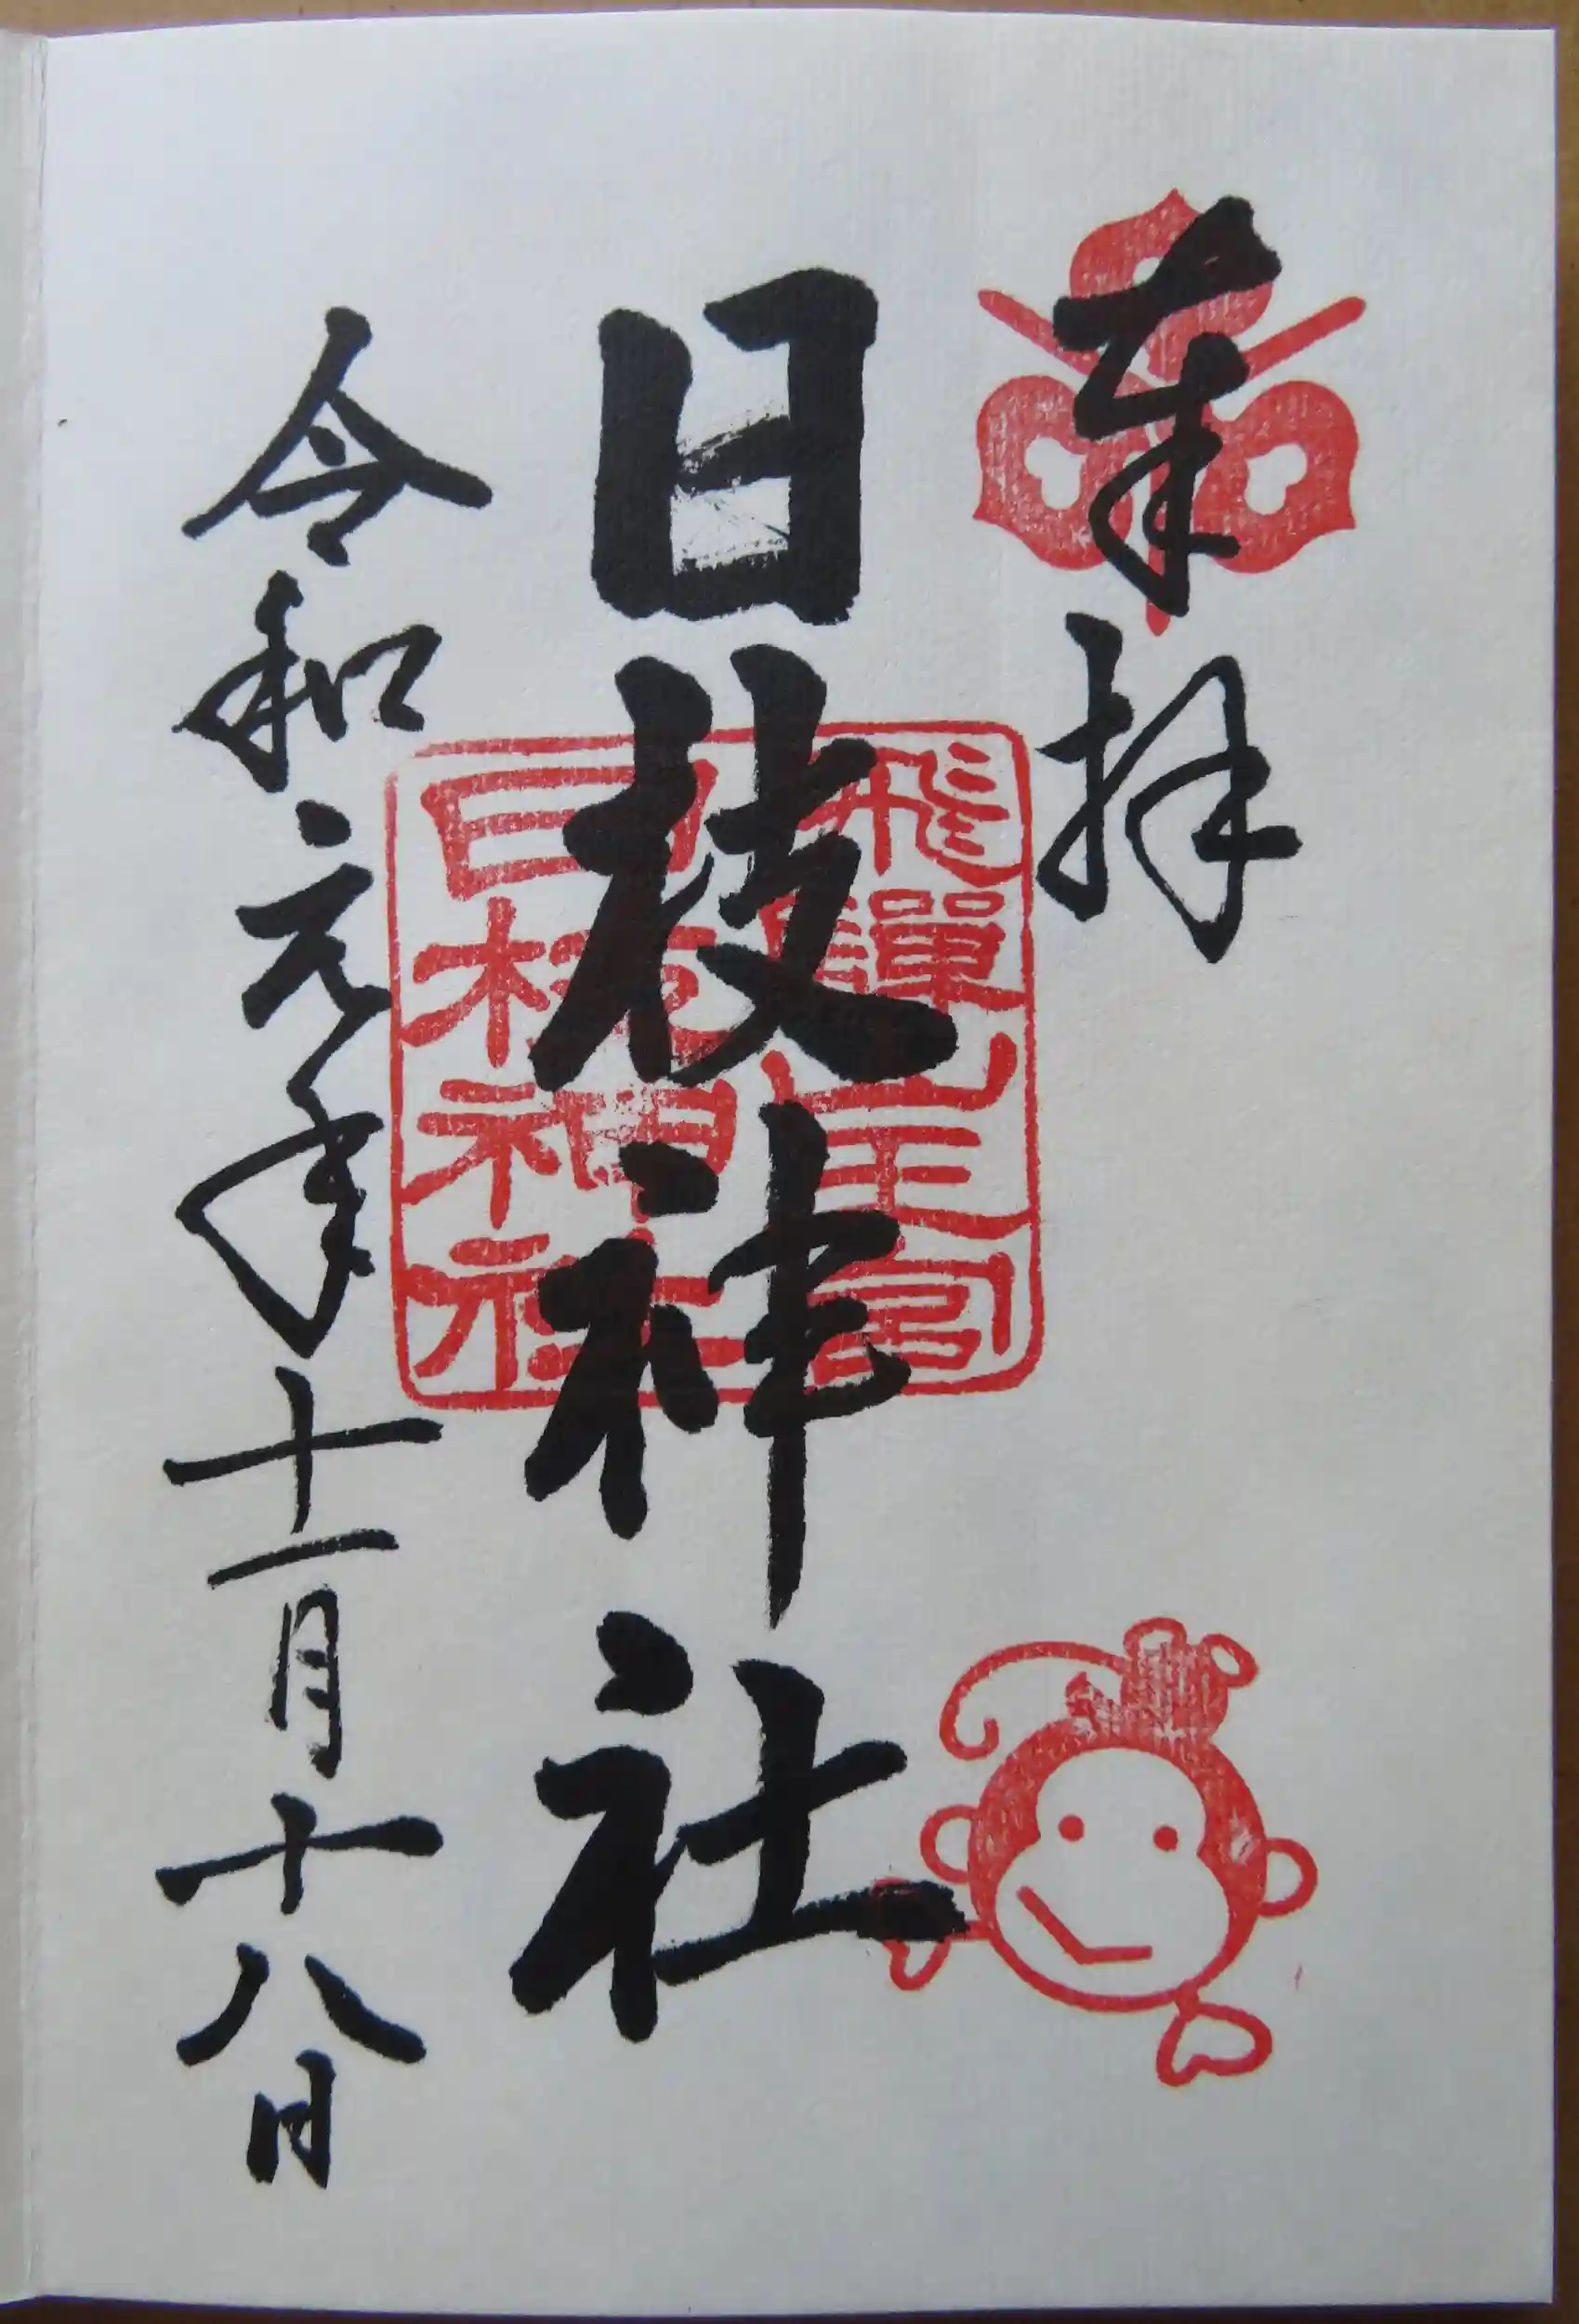 奉拝
日枝神社
飛驒山王宮
日枝神社
令和元年十一月十八日